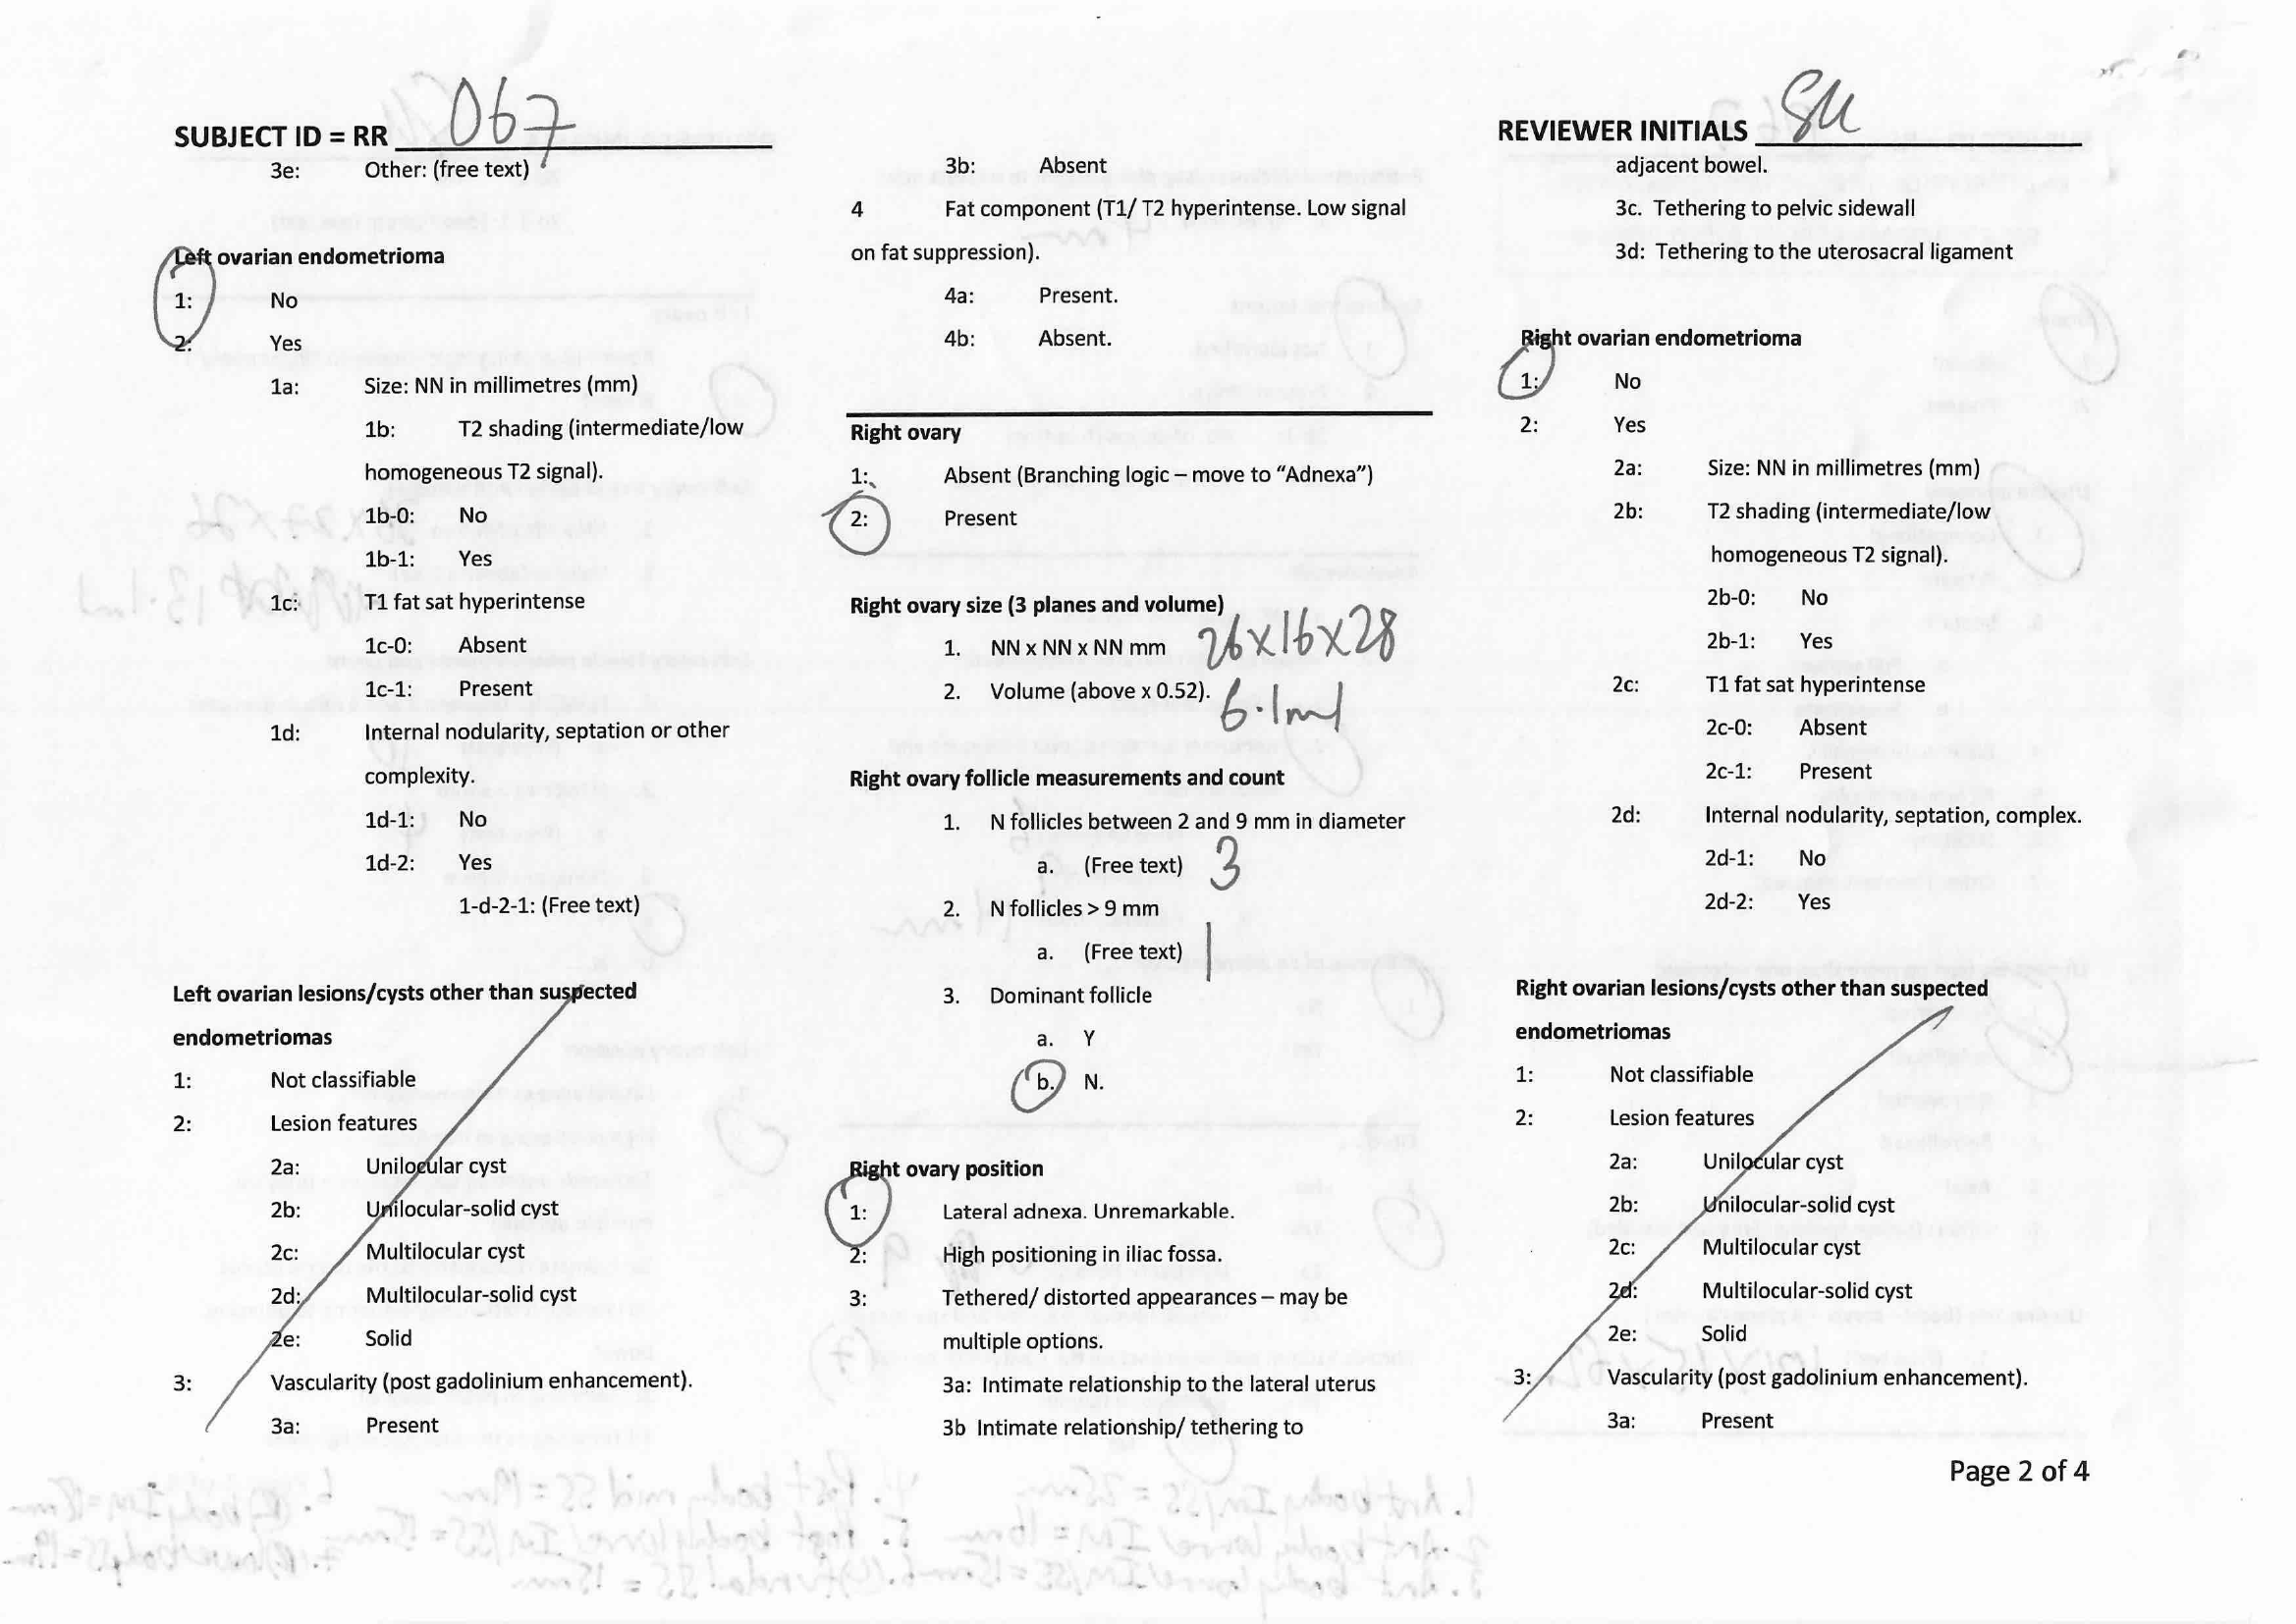 SUBJECT ID = RR 067
3e: Other: (free text)
Left ovarian endometrioma
1: No
2: Yes
1a: Size: NN in millimetres (mm)
1b: T2 shading (intermediate/low
homogeneous T2 signal).
1b-0: No
1b-1: Yes
1c: T1 fat sat hyperintense
1c-0: Absent
1c-1: Present
1d: Internal nodularity, septation or other
complexity.
1d-1: No
1d-2: Yes
1-d-2-1: (Free text)
Left ovarian lesions/cysts other than suspected
endometriomas
1: Not classifiable
2: Lesion features
2a: Unilocular cyst
2b: Unilocular-solid cyst
2c: Multilocular cyst
2d: Multilocular-solid cyst
2e: Solid
3: Vascularity (post gadolinium enhancement).
3a: Present
3b: Absent
4 Fat component (T1/ T2 hyperintense. Low signal
on fat suppression).
4a: Present.
4b: Absent.
Right ovary
1: Absent (Branching logic – move to “Adnexa”)
2: Present
Right ovary size (3 planes and volume)
1. NN x NN x NN mm 26x16x28
2. Volume (above x 0.52). 6.1ml
Right ovary follicle measurements and count
1. N follicles between 2 and 9 mm in diameter
a. (Free text) 3
2. N follicles > 9 mm
a. (Free text) 1
3. Dominant follicle
a. Y
b. N.
Right ovary position
1: Lateral adnexa. Unremarkable.
2: High positioning in iliac fossa.
3: Tethered/ distorted appearances – may be
multiple options.
3a: Intimate relationship to the lateral uterus
3b Intimate relationship/ tethering to
REVIEWER INITIALS SM
adjacent bowel.
3c. Tethering to pelvic sidewall
3d: Tethering to the uterosacral ligament
Right ovarian endometrioma
1: No
2: Yes
2a: Size: NN in millimetres (mm)
2b: T2 shading (intermediate/low
homogeneous T2 signal).
2b-0: No
2b-1: Yes
2c: T1 fat sat hyperintense
2c-0: Absent
2c-1: Present
2d: Internal nodularity, septation, complex.
2d-1: No
2d-2: Yes
Right ovarian lesions/cysts other than suspected
endometriomas
1: Not classifiable
2: Lesion features
2a: Unilocular cyst
2b: Unilocular-solid cyst
2c: Multilocular cyst
2d: Multilocular-solid cyst
2e: Solid
3: Vascularity (post gadolinium enhancement).
3a: Present
Page 2 of 4